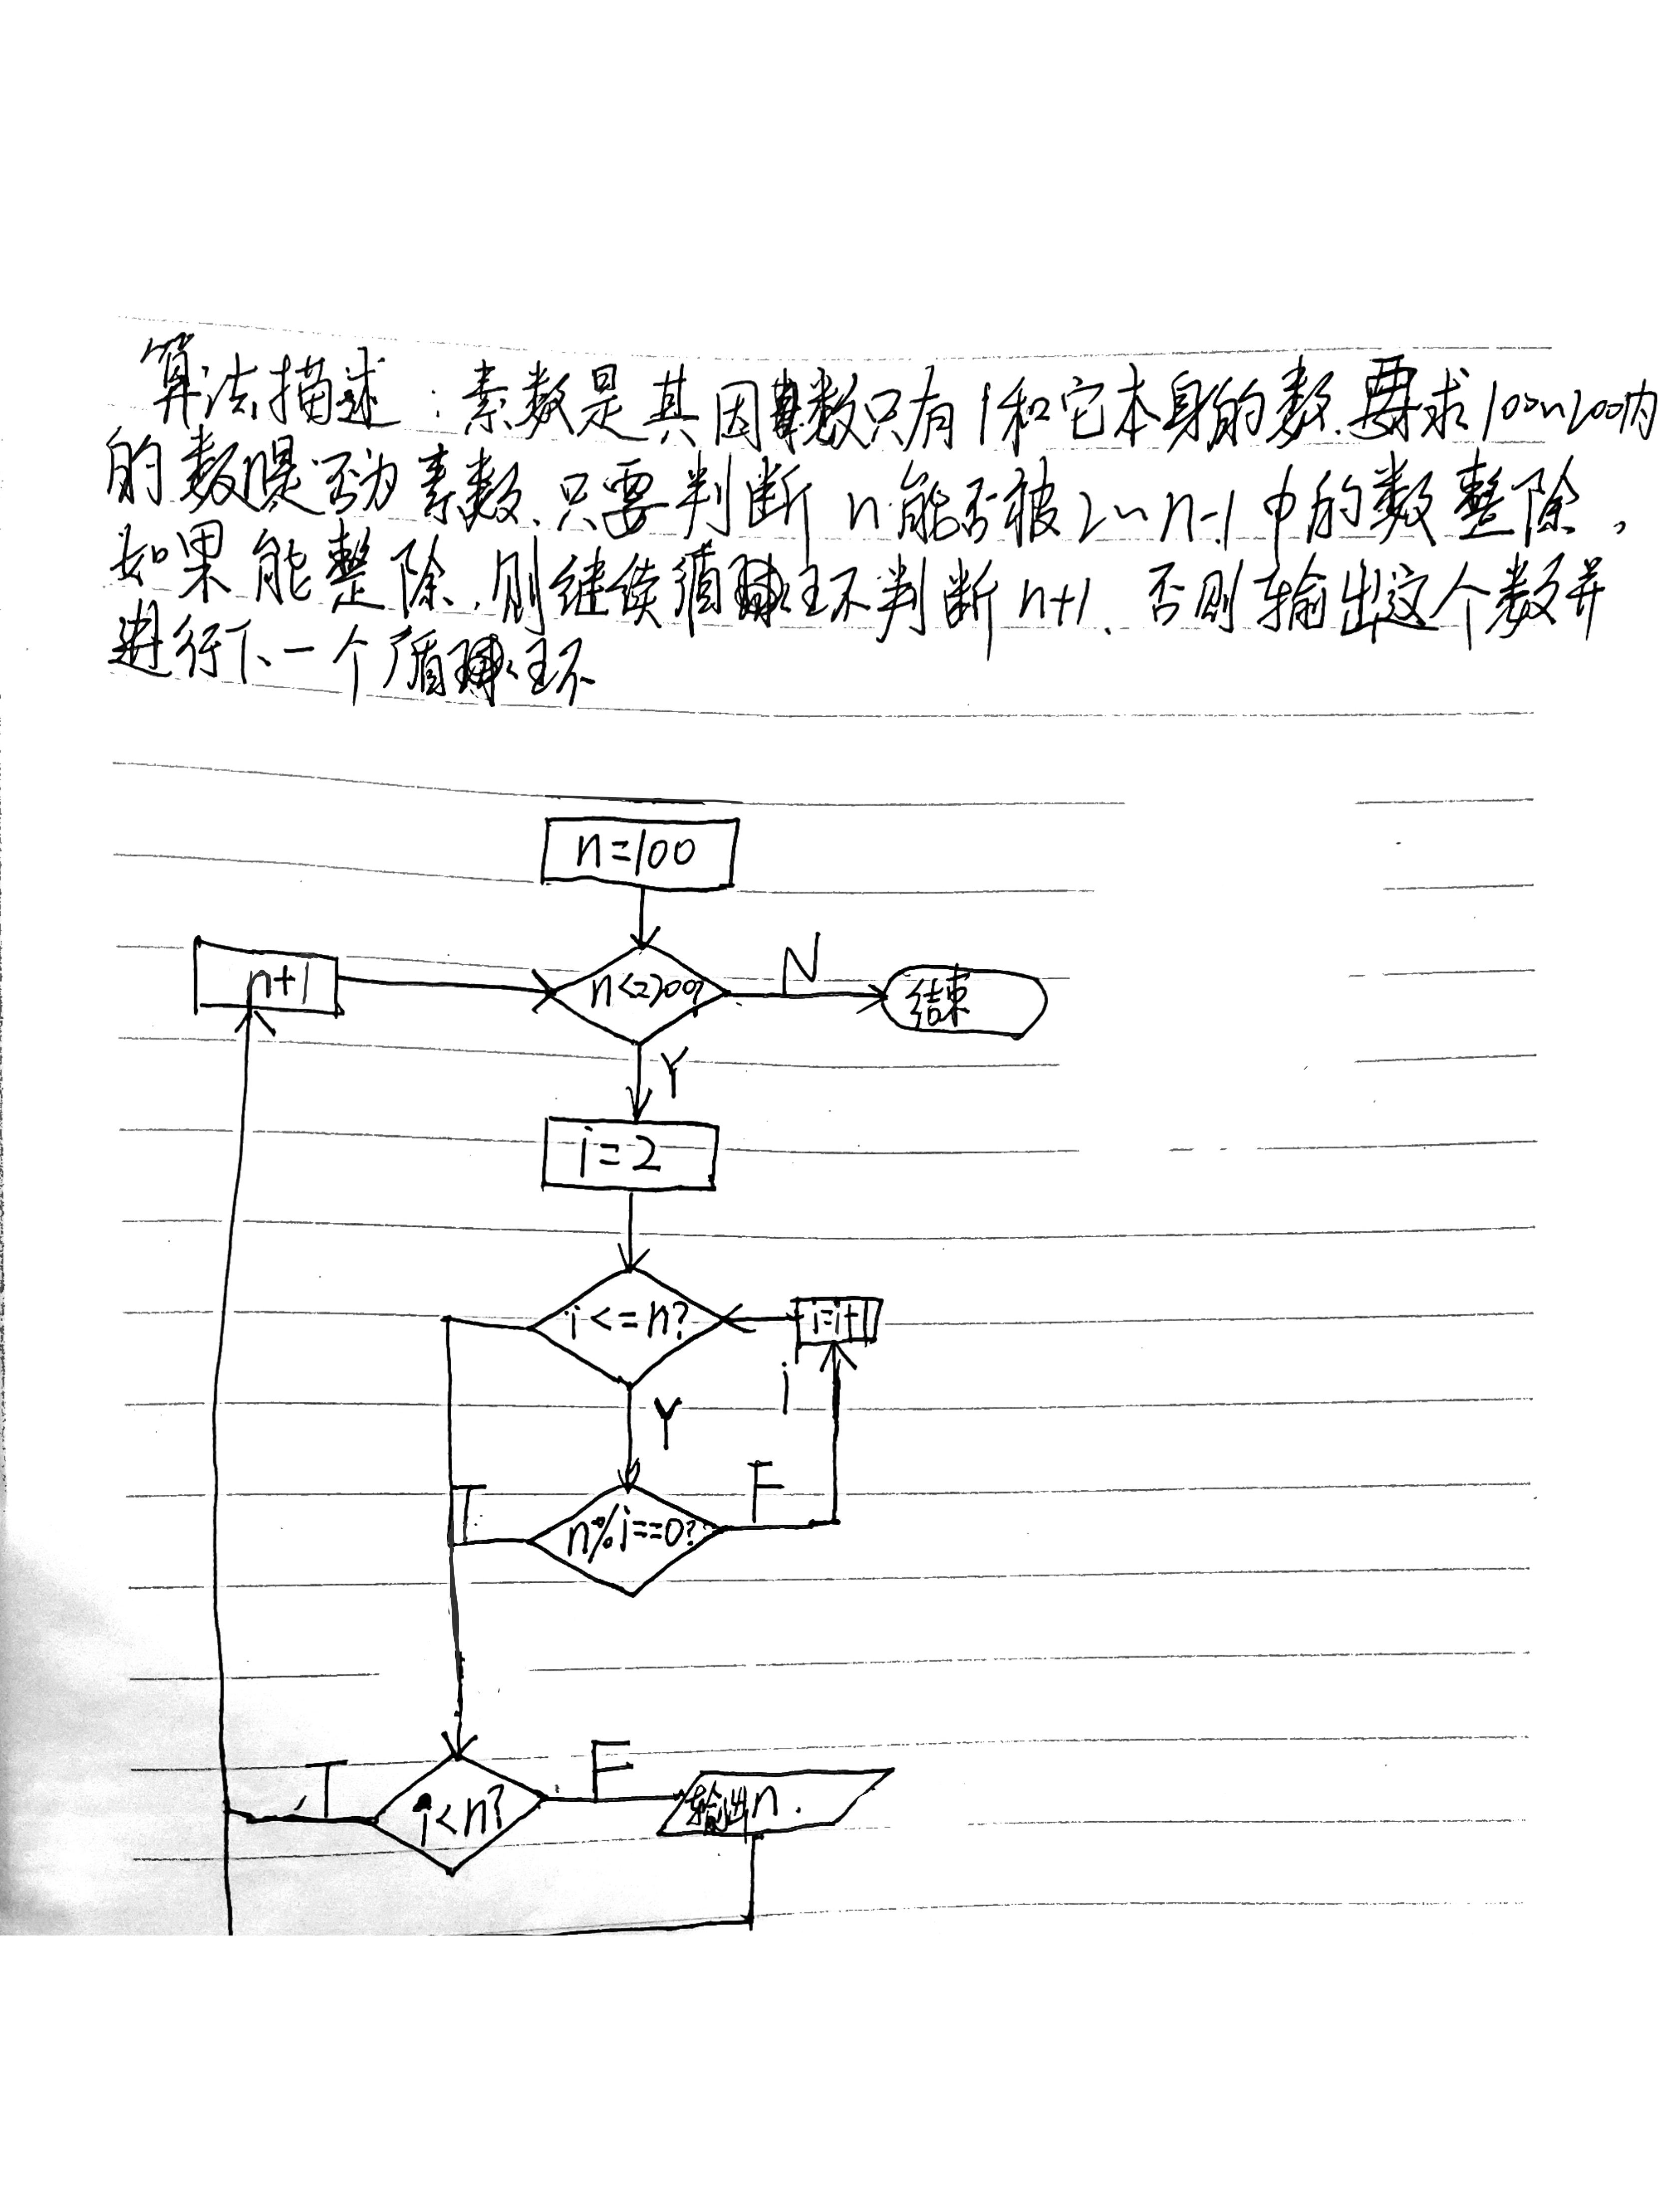 算法描述:素数是其因数只有1和它本身的数.要求100~200内
的数是否为素数.只要判断n能否被2~n-1中的数整除,
如果能整除.则继续循环判断n+1.否则输出这个数并
进行下一个循环
n=100
n+1
N
结束
Y
i=2
i<=n?
i=i+1
i
Y
T
F
n%i==0?
T
F
i<n?
输出n.